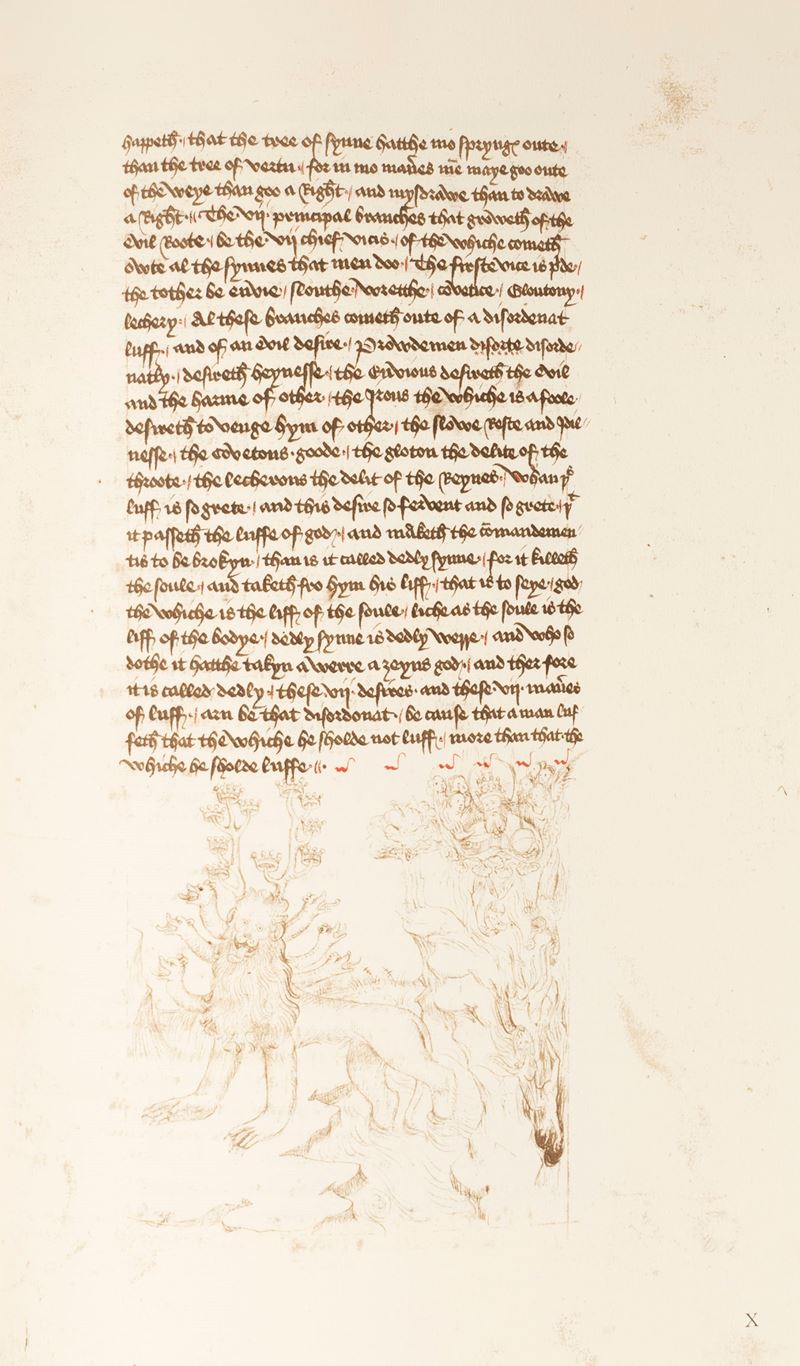 happeth · that the tree of synne hatthe mo spryngẹ oute ·
than the tree of vertu · for in mo man̄es mē maye goo oute
of the weye than goo a Right · and mysdrawe than to drawe
a Right · The vij · principal branches that groweth of the
Evil Roote · be the vij chief vicis · of the whiche cometh
owte al the synnes that men doo · The firste vice is p̄de /
the tother be envie / slouthe · wretthe · covetice · Gloutony · /
lechery · Al these branches cometh oute of a disordenat
luff · and of an Evil desire · Prowdemen disorde /
natly · desireth heynesse · the Envious desireth the Evil
and the harme of other · the Irous the whiche is a foole
desireth to venge hym of other · the slowe Reste and Idil /
nesse · the covetous · goode · the gloton the delite of the
throote · the lecherous the delit of the Reynes · Whan þͭ
luff is so grete · and this desire so fervent and so grete · þͭ
it passeth the luffe of god · and maketh the cōmandemen
tis to be brokyn · than is it called dedly synne · for it killeth
the soule · and taketh fro hym his liff · that is to seye / god
the whiche is the liff of the soule · liche as the soule is the
liff of the bodye · dedly synne is dedly werre · and who so
dothe it hatthe takyn a werre a zeyns god · and ther fore
it is called dedly · these vij · desires · and these vij · man̄es
of luff · arn be that disordonat · be cause that a man luf
feth that the whiche he sholde not luff · more than that the
whiche he sholde luffe ·
X